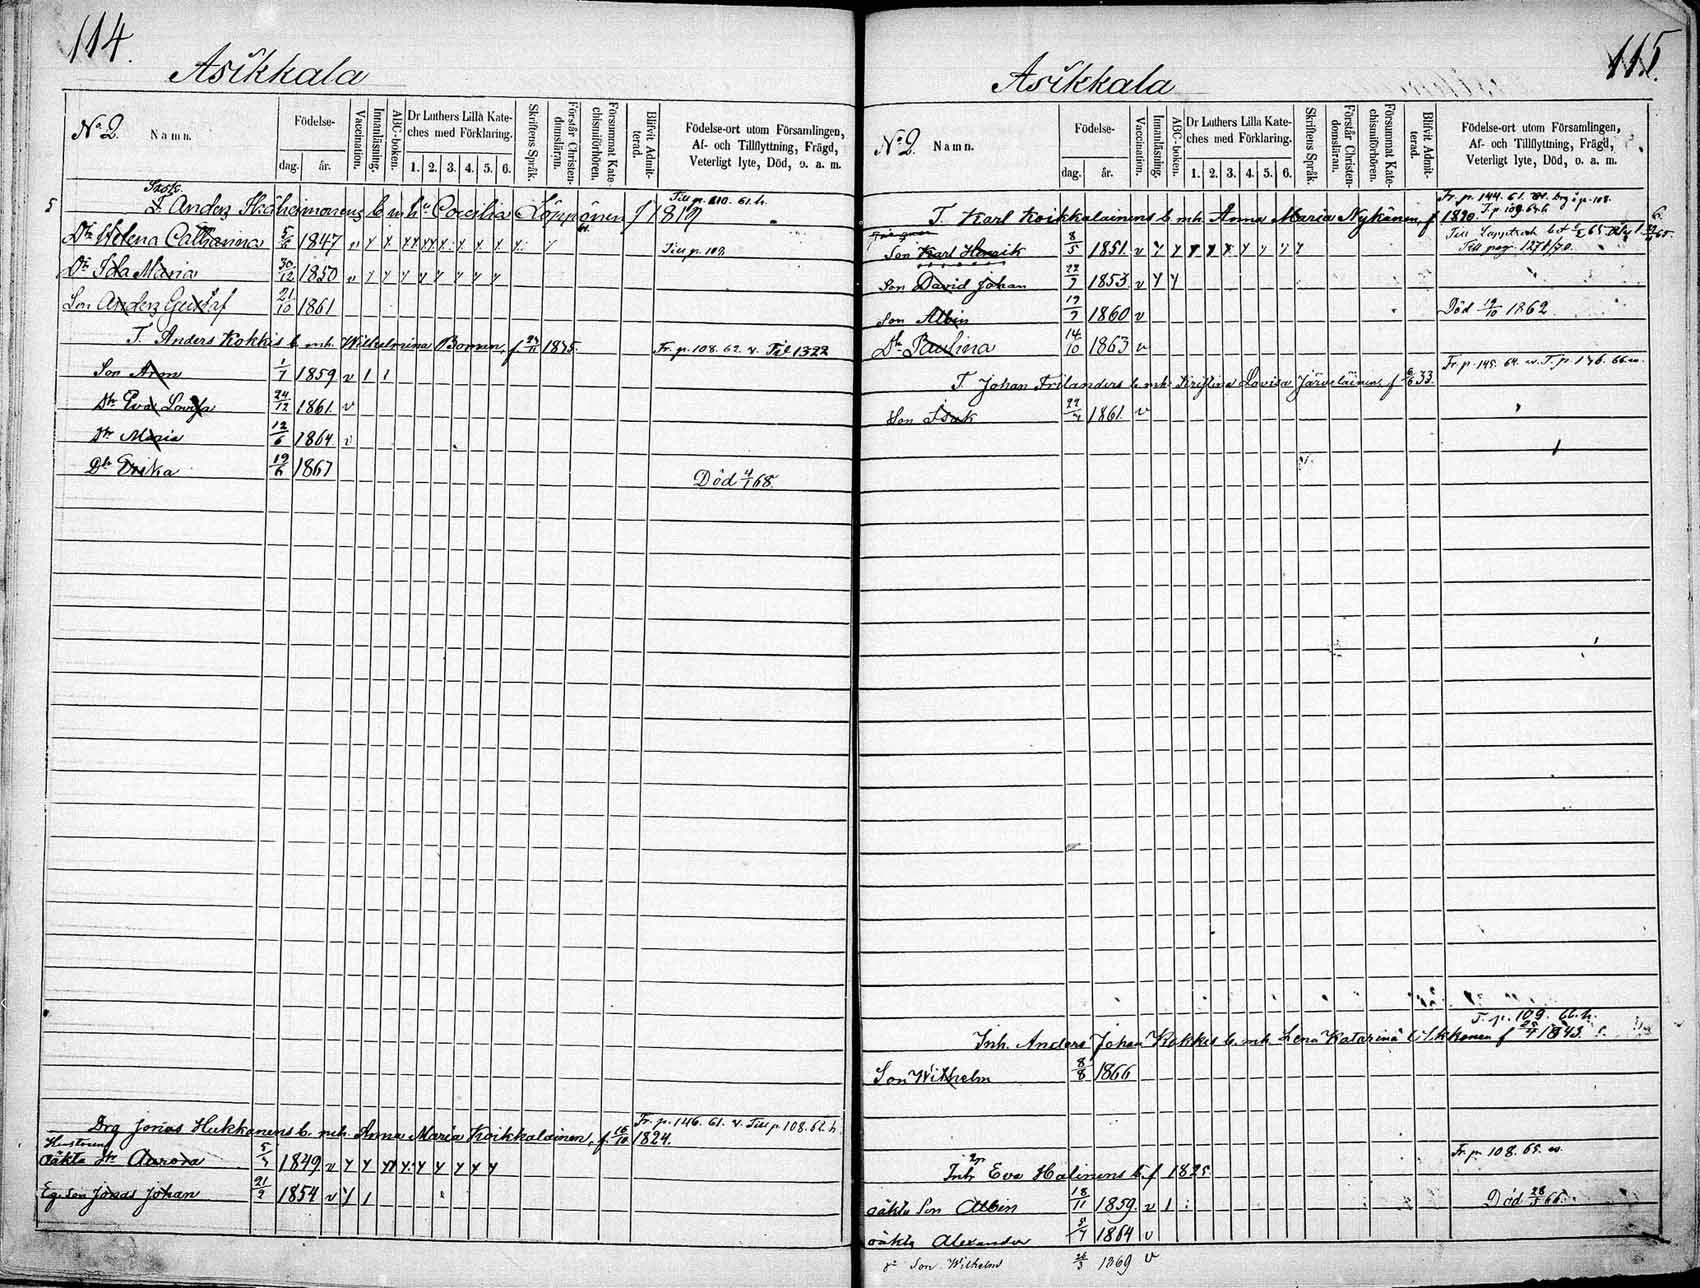 114.
Asikkala
No 2. Namn.
Födelse-
dag. år.
Vaccination.
Innanläsning.
ABC-boken.
Dr Luthers Lilla Kate-
ches med Förklaring.
1. 2. 3. 4. 5. 6.
Skriftens Språk.
Förstår Christen-
domsläran.
Försummat Kate
chismiförhören.
Blifvit Admit-
terad.
Födelse-ort utom Församlingen,
Af- och Tillflyttning, Frägd,
Veterligt lyte, Död, o. a. m.
Till p. 110. 61. h.
5 T. Anders b. m. h. Cecilia Löppönen f 1819
Dtr Helena Catharina 5/6 1847 Till p. 109.
Dtr Ida Maria 30/12 1850
Son Anders Gustaf 21/10 1861
T. Anders Kokkis b. m. h. Wilhelmina Boman, f 1835. Fr. p. 108. 62. v. Till 1322
Son Arm 1/7 1859 v 1 1
Dtr Eva Lovisa 24/12 1861. v
Dtr Maria 12/6 1864 v
Dtr Erika 19/6 1867
Död 4/1 68.
Fr. p. 146. 61. v. Till p. 108. 62. h.
Drg Jonas Hukkanens b. m. h. Anna Maria Koikkalainen, f. 16/10 1824.
Hustruns
oäkta Dtr Aurora 5/7 1849 v
Eg. Son Jonas Johan 21/2 1854 v
115.
Asikkala
No 2. Namn.
Födelse-
dag. år.
Vaccination.
Innanläsning.
ABC-boken.
Dr Luthers Lilla Kate-
ches med Förklaring.
1. 2. 3. 4. 5. 6.
Skriftens Språk.
Förstår Christen-
domsläran.
Försummat Kate-
chismiförhören.
Blifvit Admit-
terad.
Födelse-ort utom Församlingen,
Af- och Tillflyttning, Frägd,
Veterligt lyte, Död, o. a. m.
Fr. p. 144. 61. p. 108.
T. Karl Koikkalainens b. m. h. Anna Maria Nykänen, f 1820. T. p. 109. 6.
Son Karl Henrik 8/5 1851. v Till pag. 1278/70.
Son David Johan 22/7 1853 v
Son Albin 19/7 1860 v Död 19/10 1862
Dtr Paulina 14/10 1863 v
Fr. p. 145. 64. v. T. p. 146. 66.
T. Johan Frilanders b. m. h. Kristina Lovisa Järveläinen, f 6/6 33.
Son Isak 22/7 1861. v
T. p. 109. 66. h.
Inh. Anders Johan Kokkis b. m. h. Lena Katarina f 1843.
Son Wilhelm 8/8 1866
Fr. p. 108. 65.
Inh. Eva Halinens b. f 1825.
oäkta Son Albin 18/11 1859. v 1 Död 28/5 66.
oäkta Alexander 1864 v
Son Wilhelm 1869 v